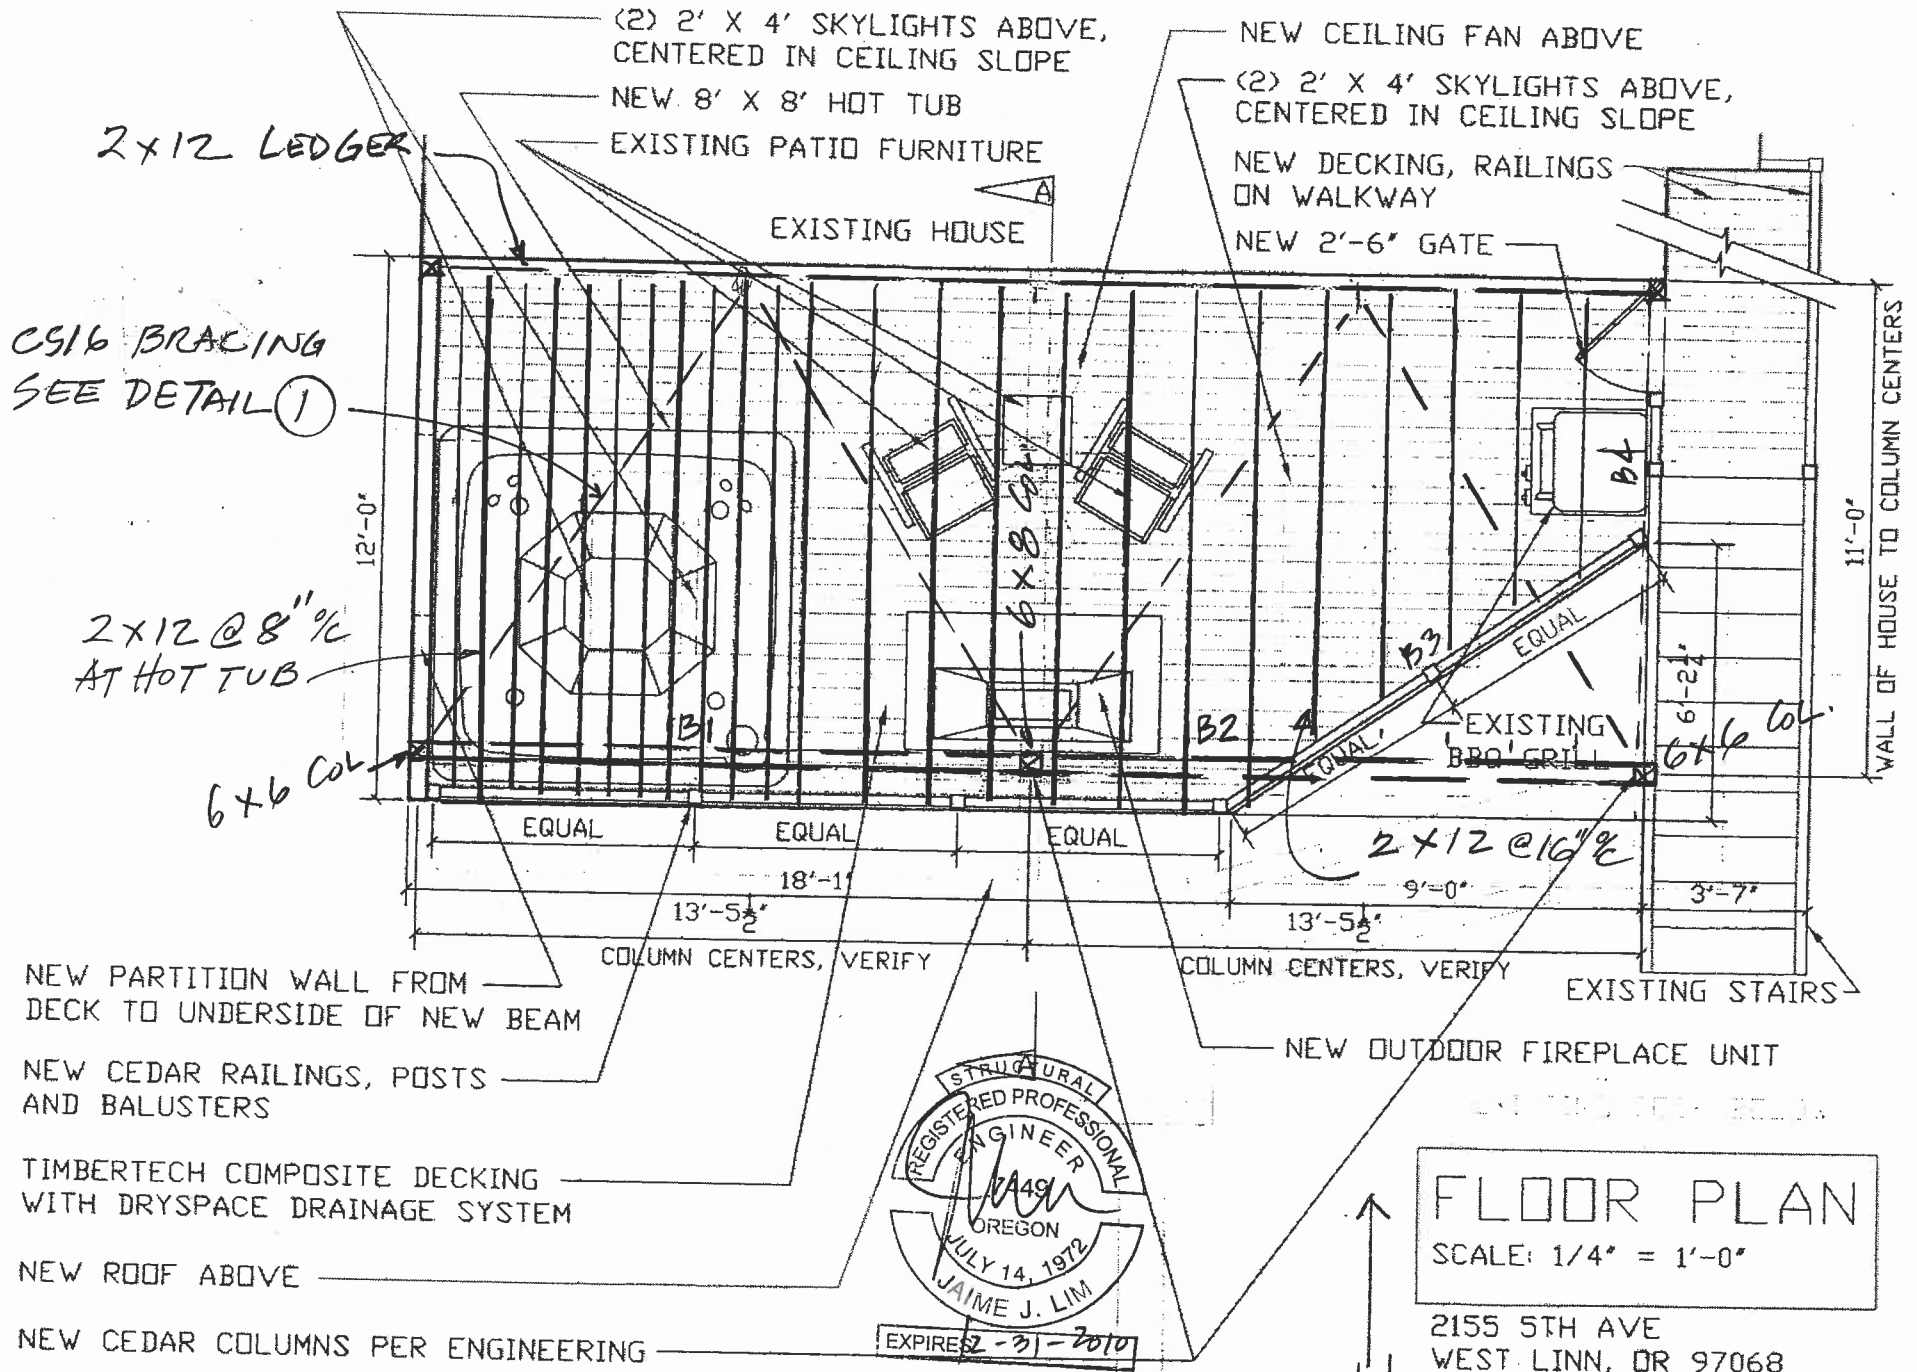 (2) 2' X 4' SKYLIGHTS ABOVE,
CENTERED IN CEILING SLOPE
NEW 8' X 8' HOT TUB
EXISTING PATIO FURNITURE
NEW CEILING FAN ABOVE
(2) 2' X 4' SKYLIGHTS ABOVE,
CENTERED IN CEILING SLOPE
NEW DECKING, RAILINGS
ON WALKWAY
NEW 2'-6" GATE
2x12 LEDGER
A
EXISTING HOUSE
CS16 BRACING
SEE DETAIL 1
12'-0"
6x8 COL.
B4
11'-0"
WALL OF HOUSE TO COLUMN CENTERS
2x12 @ 8" o/c
AT HOT TUB
B1
B2
B3
EQUAL
EQUAL
EXISTING
BBQ GRILL
6'-2 1/4"
6x6 COL.
6x6 COL
EQUAL
EQUAL
EQUAL
2x12 @ 16" o/c
18'-1"
9'-0"
3'-7"
13'-5 1/2"
13'-5 1/2"
COLUMN CENTERS, VERIFY
COLUMN CENTERS, VERIFY
EXISTING STAIRS
NEW PARTITION WALL FROM
DECK TO UNDERSIDE OF NEW BEAM
NEW OUTDOOR FIREPLACE UNIT
NEW CEDAR RAILINGS, POSTS
AND BALUSTERS
TIMBERTECH COMPOSITE DECKING
WITH DRYSPACE DRAINAGE SYSTEM
NEW ROOF ABOVE
NEW CEDAR COLUMNS PER ENGINEERING
A
STRUCTURAL
REGISTERED PROFESSIONAL
ENGINEER
OREGON
JULY 14, 1972
JAIME J. LIM
EXPIRES
FLOOR PLAN
SCALE: 1/4" = 1'-0"
2155 5TH AVE
WEST LINN, OR 97068